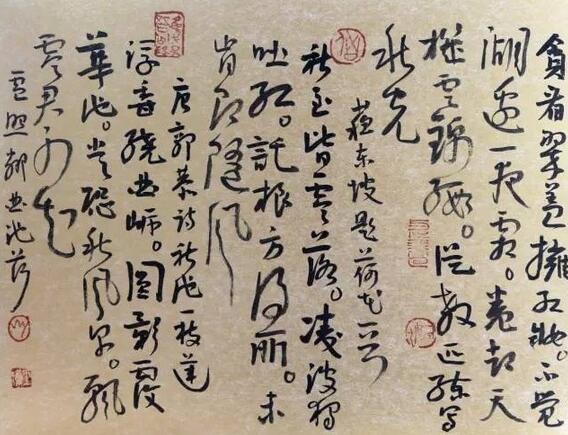 貪看翠蓋擁紅妝。不覺
湖邊一夜霜。卷却天
機雲錦緞。從教匹練寫
秋光
蘇東坡題荷花一首
秋至皆零落。凌波獨
吐紅。託根方得所。未
肯即隨風
唐郭恭詩秋池一枝蓮
浮香繞曲岸。圓影覆
華池。常恐秋風早。飄
零君不知
盧照鄰曲池荷